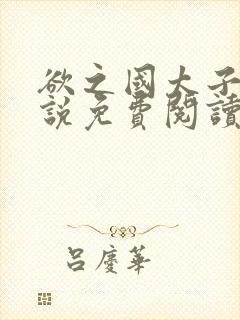 欲之國大子
說免費閱讀
呂慶華